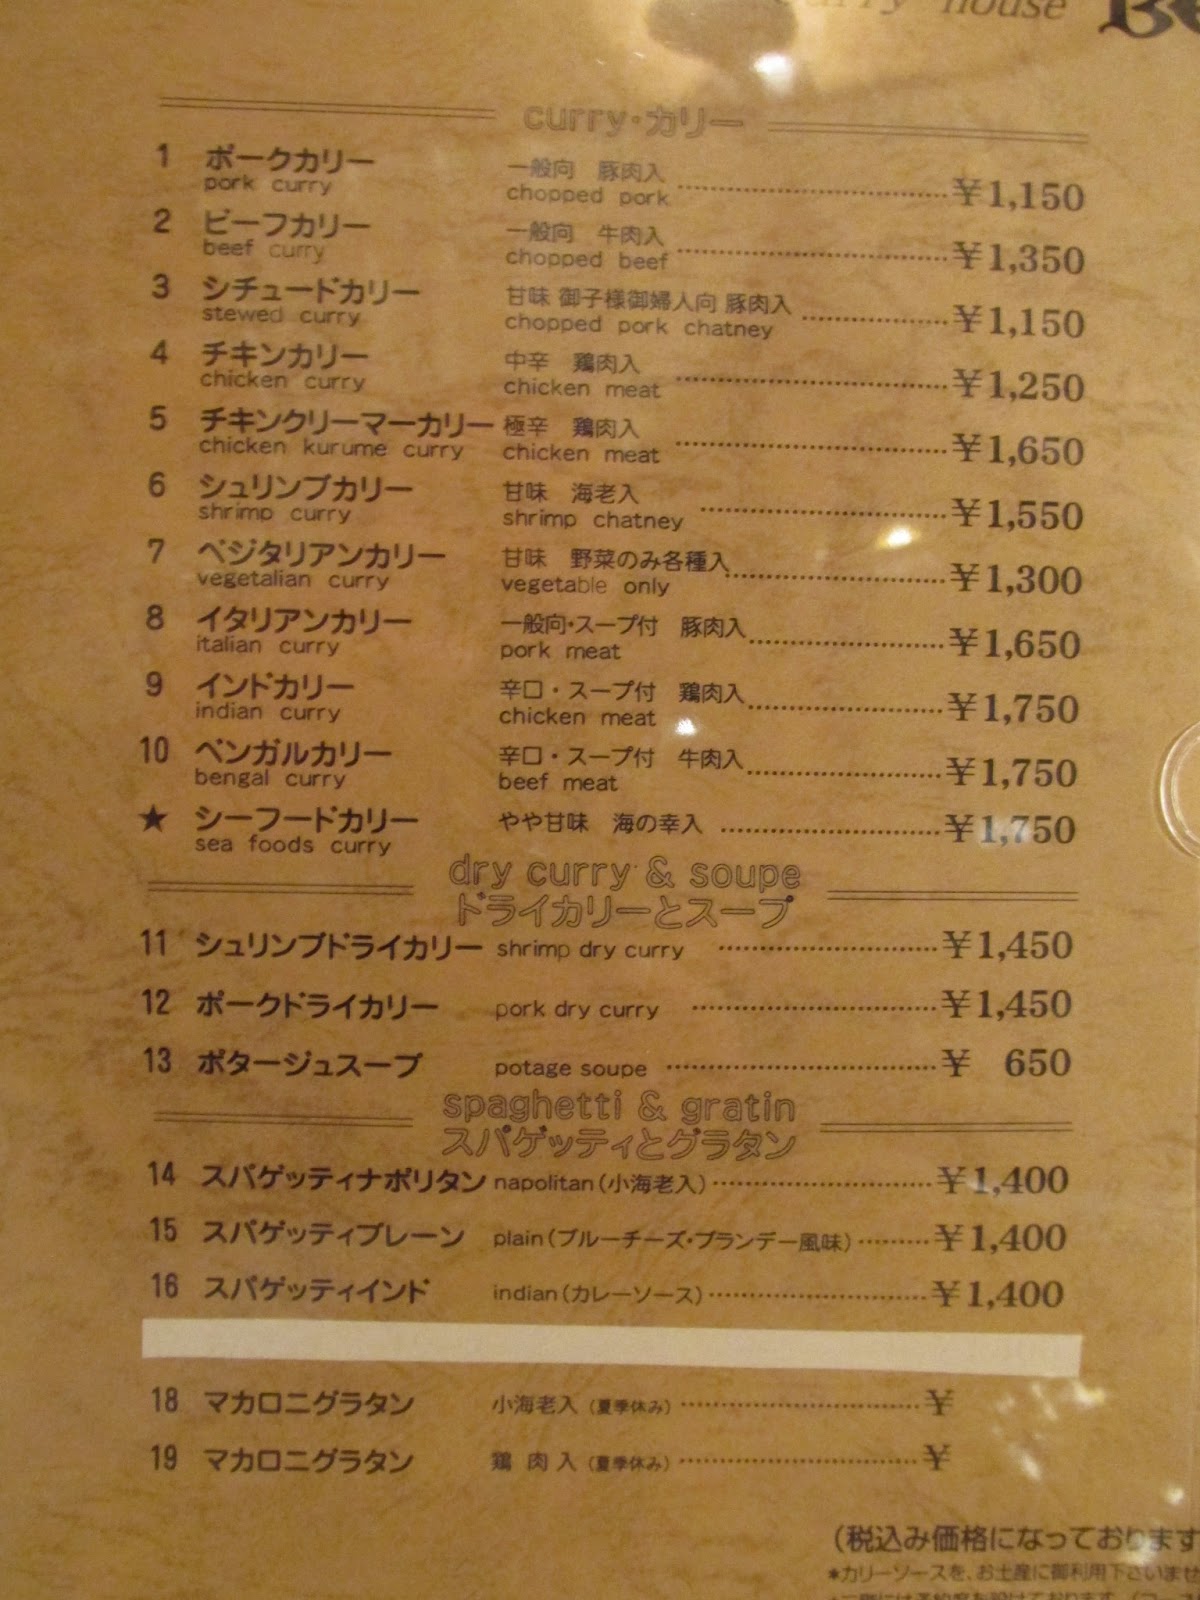 curry house Be
curry・カリー
1 ポークカリー 一般向 豚肉入
pork curry chopped pork ¥1,150
2 ビーフカリー 一般向 牛肉入
beef curry chopped beef ¥1,350
3 シチュードカリー 甘味 御子様御婦人向 豚肉入
stewed curry chopped pork chatney ¥1,150
4 チキンカリー 中辛 鶏肉入
chicken curry chicken meat ¥1,250
5 チキンクリーマーカリー 極辛 鶏肉入
chicken kurume curry chicken meat ¥1,650
6 シュリンプカリー 甘味 海老入
shrimp curry shrimp chatney ¥1,550
7 ベジタリアンカリー 甘味 野菜のみ各種入
vegetalian curry vegetable only ¥1,300
8 イタリアンカリー 一般向・スープ付 豚肉入
italian curry pork meat ¥1,650
9 インドカリー 辛口・スープ付 鶏肉入
indian curry chicken meat ¥1,750
10 ベンガルカリー 辛口・スープ付 牛肉入
bengal curry beef meat ¥1,750
★ シーフードカリー やや甘味 海の幸入 ¥1,750
sea foods curry
dry curry & soupe
ドライカリーとスープ
11 シュリンプドライカリー shrimp dry curry ¥1,450
12 ポークドライカリー pork dry curry ¥1,450
13 ポタージュスープ potage soupe ¥ 650
spaghetti & gratin
スパゲッティとグラタン
14 スパゲッティナポリタン napolitan(小海老入) ¥1,400
15 スパゲッティプレーン plain(ブルーチーズ・ブランデー風味) ¥1,400
16 スパゲッティインド indian(カレーソース) ¥1,400
18 マカロニグラタン 小海老入 (夏季休み) ¥
19 マカロニグラタン 鶏肉入 (夏季休み) ¥
(税込み価格になっております
*カリーソースを、お土産に御利用下さいませ